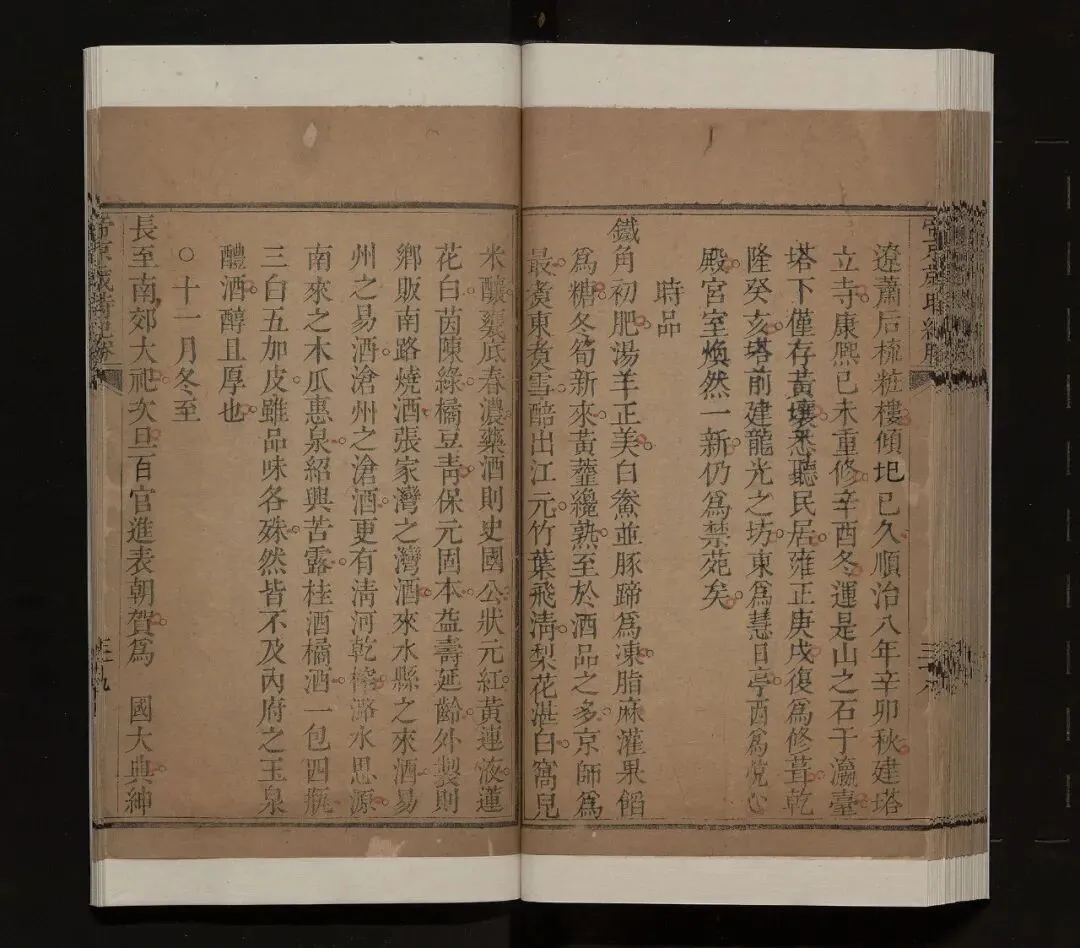 遼蕭后梳粧樓傾圯已久順治八年辛卯秋建塔
立寺康熙己未重修辛酉冬運是山之石于瀛臺
塔下僅存黃壤悉聽民居雍正庚戌復為修葺乾
隆癸亥塔前建龍光之坊東為慧日亭西為悅心
殿宮室煥然一新仍為禁苑矣
時品
鐵角初肥湯羊正美白鯗並豚蹄為凍脂麻灌果餡
為糖冬筍新來黃虀纔熟至於酒品之多京師為
最煮東煮雪醅出江元竹葉飛清梨花湛白窩兒
米釀甕底春濃藥酒則史國公狀元紅黃連液蓮
花白茵陳綠橘豆青保元固本益壽延齡外製則
鄉販南路燒酒張家灣之灣酒來水縣之來酒易
州之易酒滄州之滄酒更有清河乾榨潞水思源
南來之木瓜惠泉紹興苦露桂酒橘酒一包四瓶
三白五加皮雖品味各殊然皆不及內府之玉泉
醴酒醇且厚也
○十一月冬至
長至南郊大祀次旦百官進表朝賀為　國大典紳